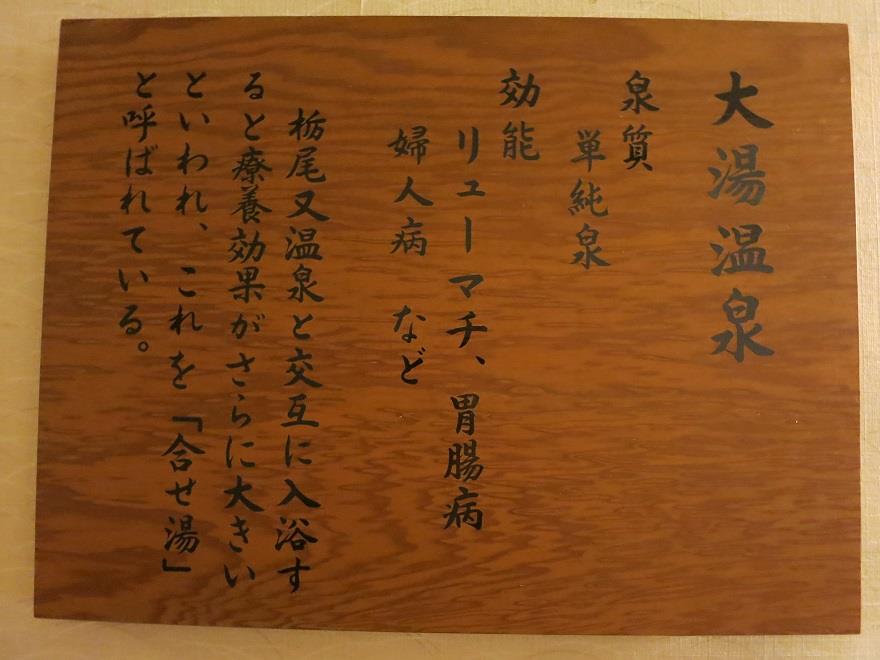 大湯温泉
泉質
単純泉
効能
リューマチ、胃腸病
婦人病 など
栃尾又温泉と交互に入浴す
ると療養効果がさらに大きい
といわれ、これを「合せ湯」
と呼ばれている。